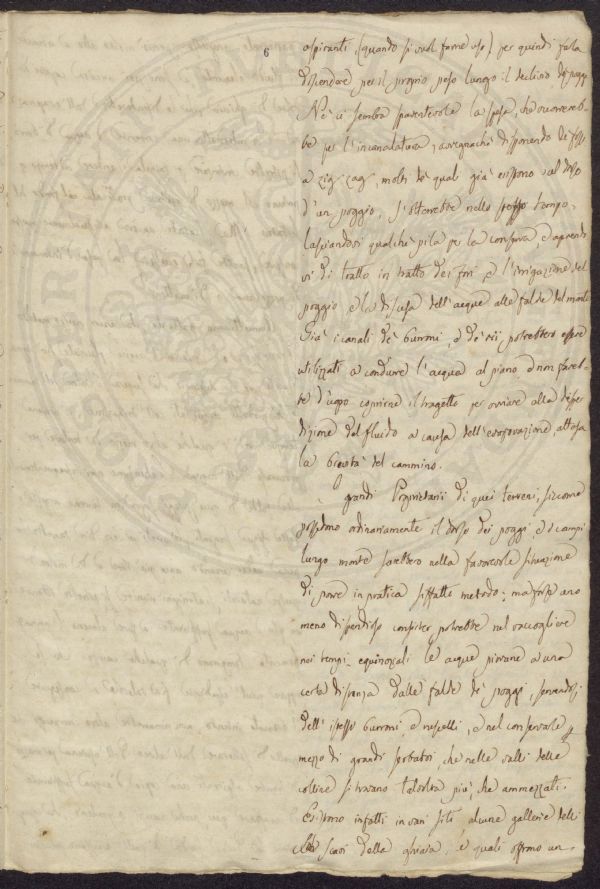 6
aspiranti (quando si vuol farne uso) per quindi farla
discendere per il proprio peso lungo il declivio de' poggi
Nè ci sembra spaventevole la spesa, che occorrereb-
be per l'incanalatura, avvegnachè disponendo de' fossi
a zig zag, molti de' quali già esistono sul dorso
d'un poggio, s'otterrebbe nello stesso tempo,
lasciandosi qualche pila per la conserva e aprendo
si di tratto in tratto dei fori, e l'irrigazione del
poggio, e la discesa dell'acque alle falde del monte
Già i canali de' burroni, e de' rii potrebbero essere
utilizzati a condurre l'acqua al piano e non fareb-
be d'uopo coprirne il tragetto per ovviare alla disper
dizione del fluido a causa dell'evaporazione, attesa
la brevità del cammino.
I grandi Proprietarii di quei terreni, siccome
possedono ordinariamente il dorso dei poggi, e i campi
lungo monte sarebbero nella favorevole situazione
di porre in pratica siffatto metodo: ma forse uno
meno dispendioso consister potrebbe nel raccogliere
nei tempi equinoziali le acque piovane a una
certa distanza dalle falde de' poggi, servendosi
dell'istessi burroni, e ruscelli, e nel conservarle per
mezzo di grandi serbatoi, che nelle valli delle
colline si trovano talvolta più, che ammezzati.
Esistono infatti in vari siti alcune gallerie delli
scavi della ghiaia, i quali offrono un